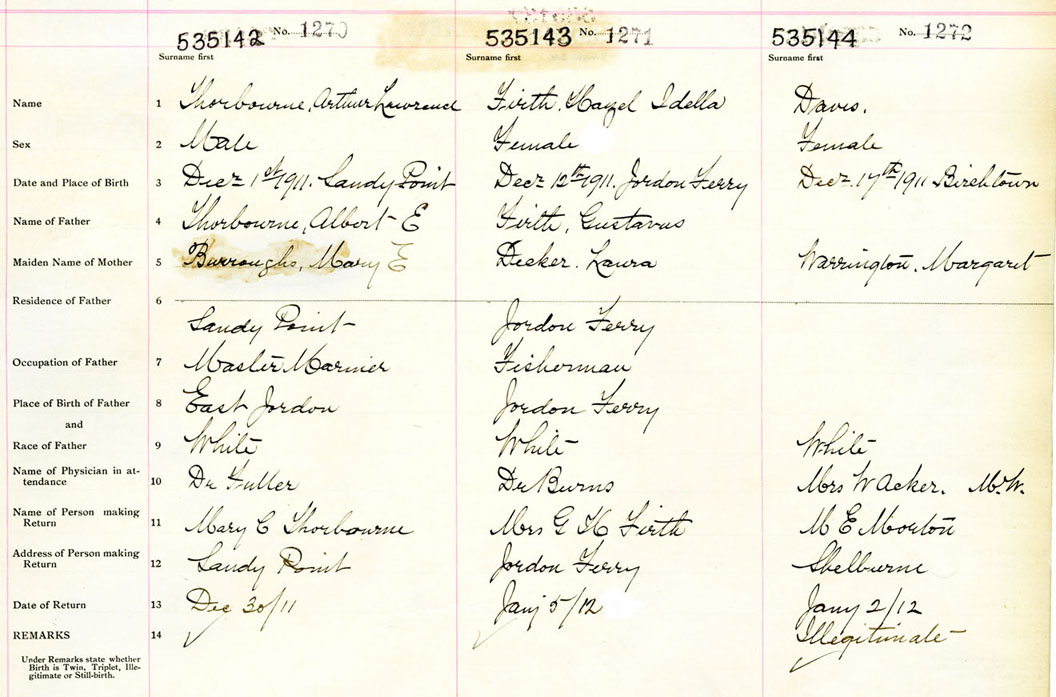 535142 No. 1270 535143 No. 1271 535144 No. 1272
Surname first Surname first Surname first
Name 1 Thorbourne, Arthur Lawrence Firth, Hazel Idella Davis.
Sex 2 Male Female Female
Date and Place of Birth 3 Decr 1st 1911. Sandy Point Decr 12th 1911. Jordon Ferry Decr. 17th 1911 Birchtown
Name of Father 4 Thorbourne, Albert E Firth, Gustavus
Maiden Name of Mother 5 Burroughs, Mary E Decker. Laura Warrington. Margaret
Residence of Father 6
Sandy Point Jordon Ferry
Occupation of Father 7 Master Mariner Fisherman
Place of Birth of Father 8 East Jordon Jordon Ferry
and
Race of Father 9 White White White
Name of Physician in at-
tendance 10 Dr Fuller Dr Burns Mrs W Acker. M.W.
Name of Person making
Return 11 Mary C Thorbourne Mrs G H Firth M E Morton
Address of Person making
Return 12 Sandy Point Jordon Ferry Shelburne
Date of Return 13 Dec 30/11 Jany 5/12 Jany 2/12
REMARKS 14 Illegitimate
Under Remarks state whether
Birth is Twin, Triplet, Ille-
gitimate or Still-birth.